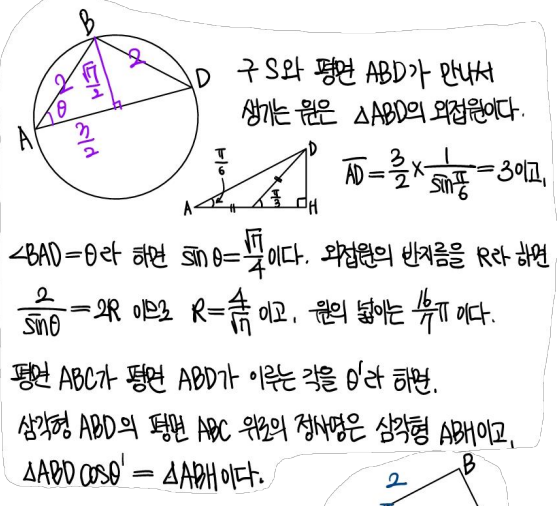 B
2
√7/2
2
θ
3/2
A
D
구 S와 평면 ABD가 만나서
생기는 원은 △ABD의 외접원이다.
π/6
D
A
π/3
H
AD = 3/2 × 1/sin π/6 = 3이고,
∠BAD = θ라 하면 sin θ = √7/4 이다. 외접원의 반지름을 R라 하면
2/sinθ = 2R 이므로 R = 4/√7 이고, 원의 넓이는 16/7 π 이다.
평면 ABC가 평면 ABD가 이루는 각을 θ'라 하면,
삼각형 ABD의 평면 ABC 위로의 정사영은 삼각형 ABH이고,
△ABD cosθ' = △ABH이다.
2
B